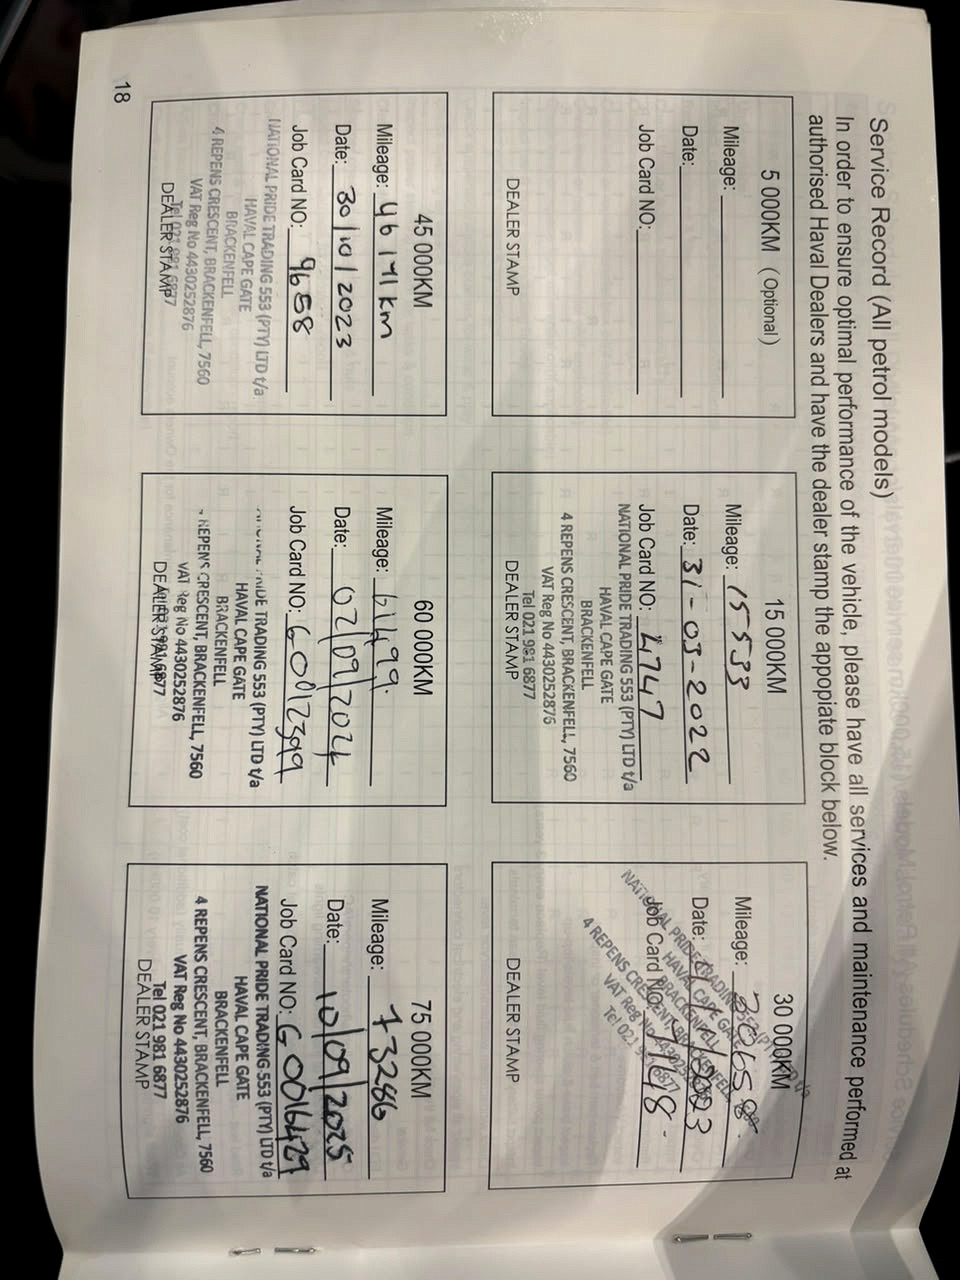 Service Record (All petrol models)
In order to ensure optimal performance of the vehicle, please have all services and maintenance performed at
authorised Haval Dealers and have the dealer stamp the appopiate block below.
5 000KM (Optional)
Mileage:
Date:
Job Card NO:
DEALER STAMP
15 000KM
Mileage: 15533
Date: 31-03-2022
Job Card NO: 4747
NATIONAL PRIDE TRADING 553 (PTY) LTD t/a
HAVAL CAPE GATE
BRACKENFELL
4 REPENS CRESCENT, BRACKENFELL, 7560
VAT Reg No 4430252876
Tel 021 981 6877
DEALER STAMP
30 000KM
Mileage:
Date:
Job Card NO:
NATIONAL PRIDE TRADING 553 (PTY) LTD t/a
HAVAL CAPE GATE
BRACKENFELL
4 REPENS CRESCENT, BRACKENFELL
VAT Reg No 4430252876
Tel 021 981 6877
DEALER STAMP
45 000KM
Mileage: 46 171 km
Date: 30/10/2023
Job Card NO: 9658
NATIONAL PRIDE TRADING 553 (PTY) LTD t/a
HAVAL CAPE GATE
BRACKENFELL
4 REPENS CRESCENT, BRACKENFELL, 7560
VAT Reg No 4430252876
Tel 021 981 6877
DEALER STAMP
60 000KM
Mileage: 61499.
Date: 02/09/2024
Job Card NO: G0012399
PRIDE TRADING 553 (PTY) LTD t/a
HAVAL CAPE GATE
BRACKENFELL
REPENS CRESCENT, BRACKENFELL, 7560
VAT Reg No 4430252876
981 6877
DEALER STAMP
75 000KM
Mileage: 73286
Date: 10/09/2025
Job Card NO: G0016429
NATIONAL PRIDE TRADING 553 (PTY) LTD t/a
HAVAL CAPE GATE
BRACKENFELL
4 REPENS CRESCENT, BRACKENFELL, 7560
VAT Reg No 4430252876
Tel 021 981 6877
DEALER STAMP
18